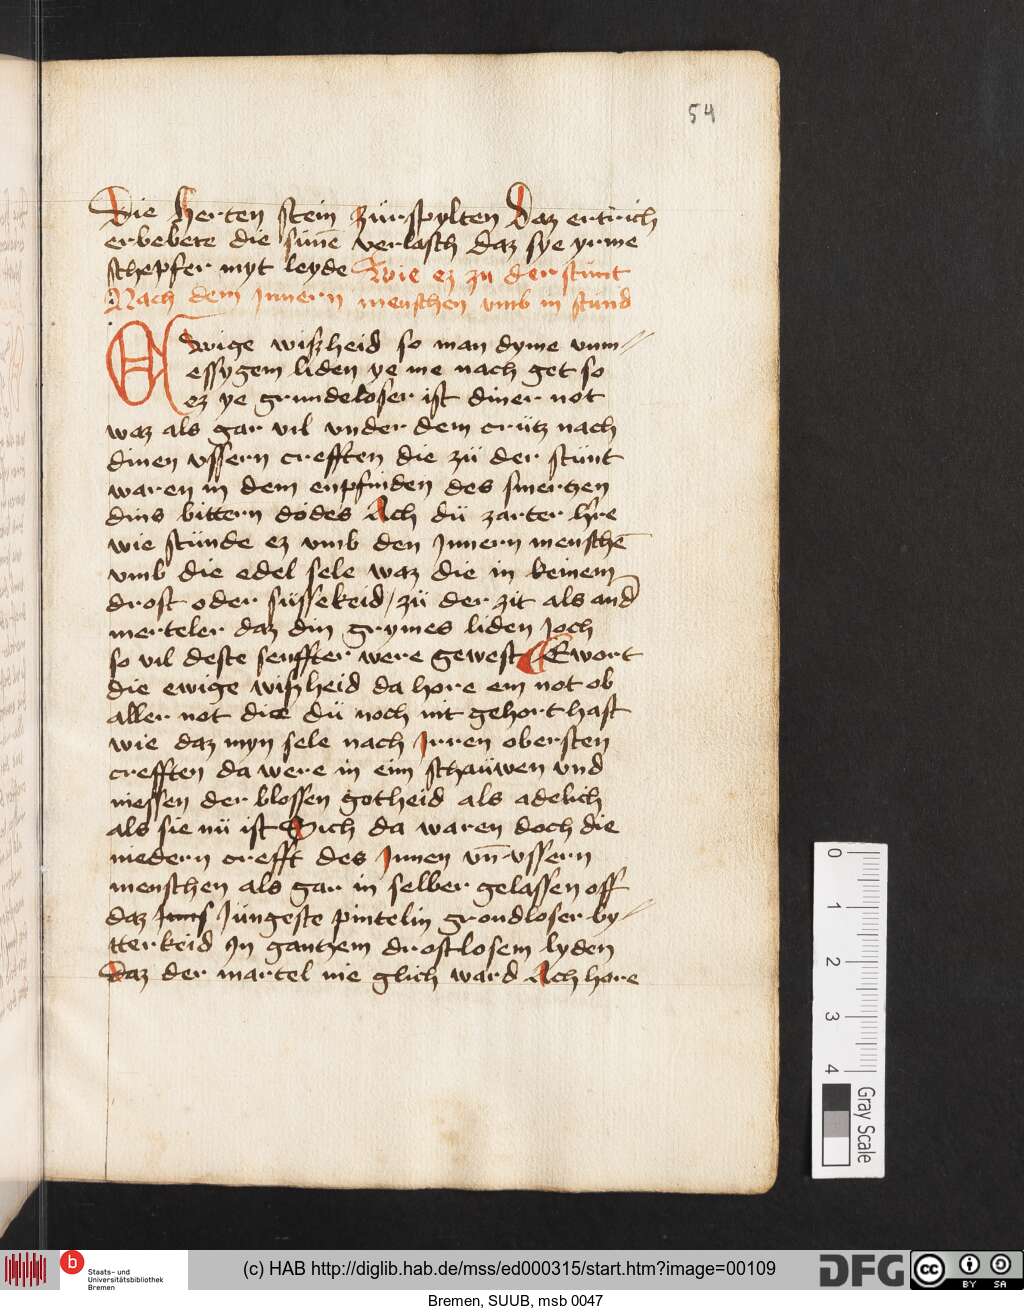 54
Die herten stein zürspylten Daz ertrich
erbebete die sunē verlasch daz sye yrme
schepfer myt leyde Wie ez zu der stunt
Nach dem Innern menschen vmb in stund
Ewige wißheid so man dyme vnm⸗
essygem liden ye me nach get so
ez ye grundeloser ist diner not
waz als gar vil vnder dem crütz nach
dinen vssern crefften die zü der stünt
waren in dem enpfinden des smertzen
dins bittern dodes Ach dü zarter hr̄e
wie stünde ez vmb den Innern menschē
vmb die edel sele waz die in keinem
drost oder süssekeid / zü der zit als and̄
merteler daz din grymes liden Joch
so vil deste senffter were gewest Ewort
die ewige wißheid da hore ein not ob
aller not die dü noch nit gehort hast
wie daz myn sele nach Irren obersten
crefften da were in eim schaüwen vnd
niessen der blossen gotheid als adelich
als sie nü ist Sich da waren doch die
niedern crefft des Innen vn̄ vssern
menschen als gar in selber gelassen off
daz Jüngeste pintelin grondloser by⸗
tterkeid In gantzem drostlosem lyden
Daz der martel nie glich ward Ach hore
0
1
2
3
4
Gray Scale
b
Staats- und
Universitätsbibliothek
Bremen
(c) HAB http://diglib.hab.de/mss/ed000315/start.htm?image=00109
DFG
cc
BY SA
Bremen, SUUB, msb 0047